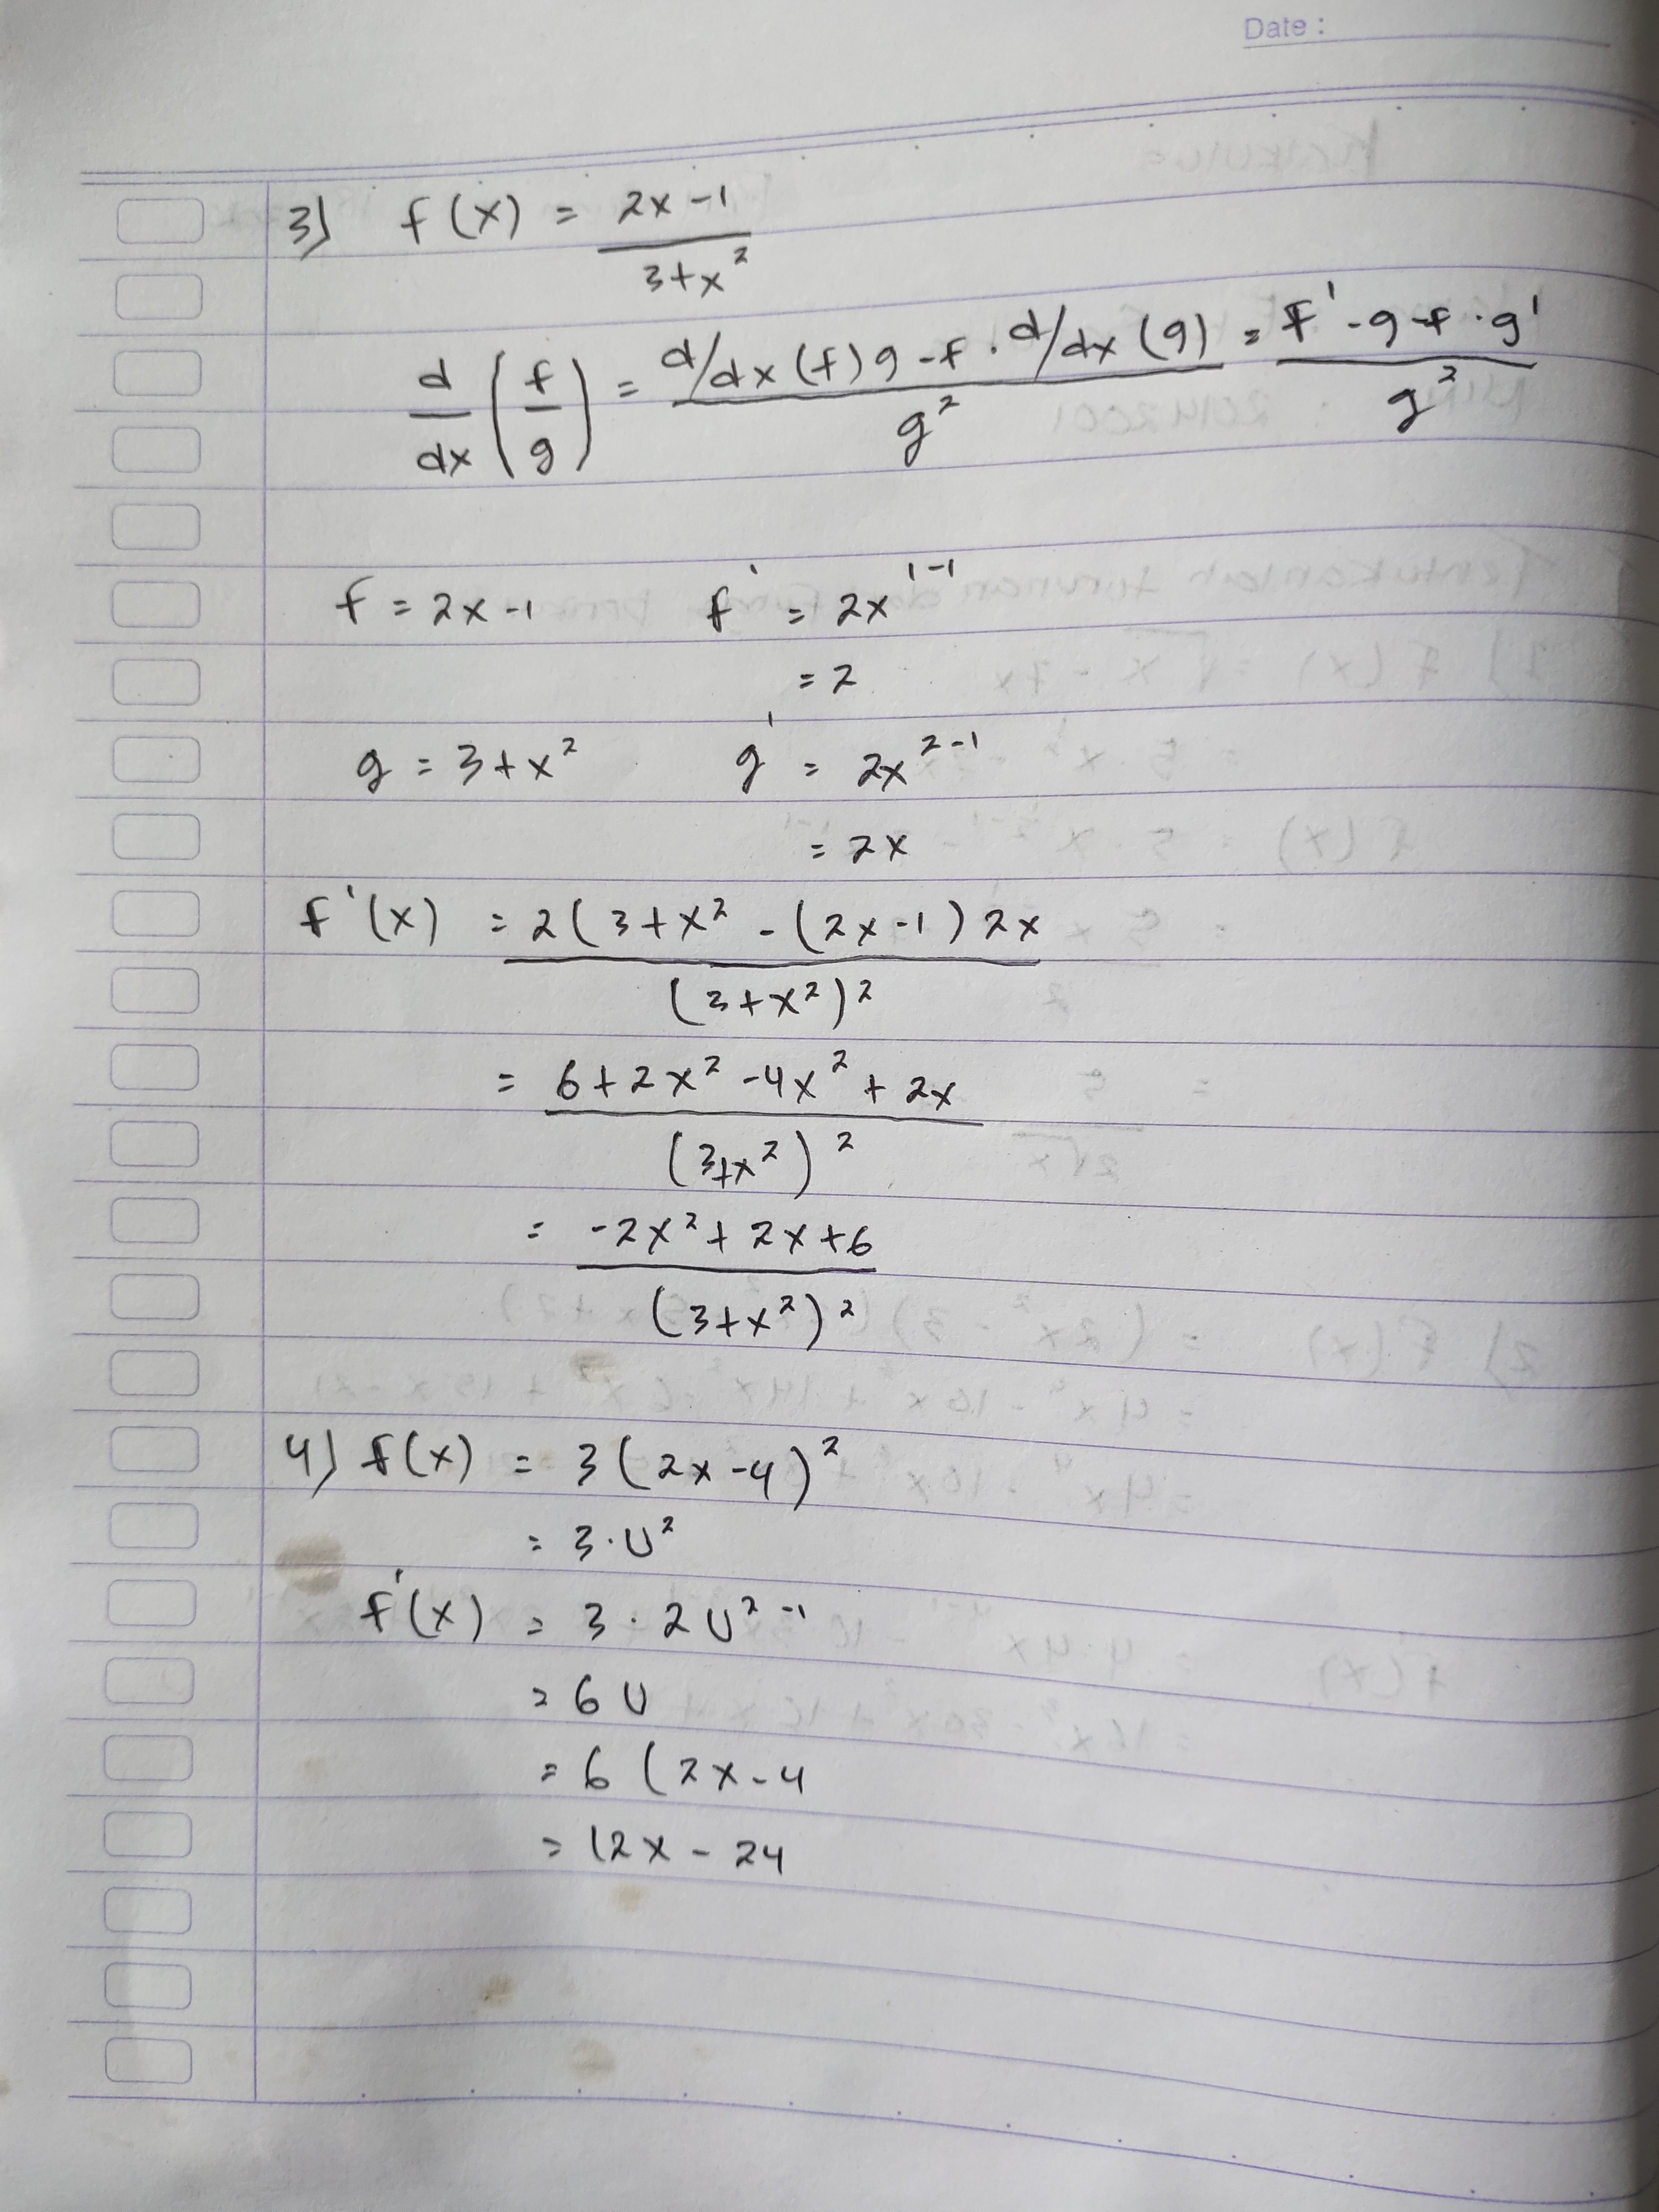 Date :
3) f(x) = 2x-1
3+x²
d/dx (f/g) = d/dx (f) g - f . d/dx (g) = f' - g - f . g'
g² g²
f = 2x-1 f' = 2x¹⁻¹
= 2
g = 3+x² g' = 2x²⁻¹
= 2x
f'(x) = 2(3+x² - (2x-1) 2x
(3+x²)²
= 6+2x² -4x² + 2x
(3+x²)²
= -2x²+2x+6
(3+x²)²
4) f(x) = 3(2x-4)²
= 3.U²
f'(x) = 3 . 2U²⁻¹
= 6U
= 6 (2x-4
= 12x - 24